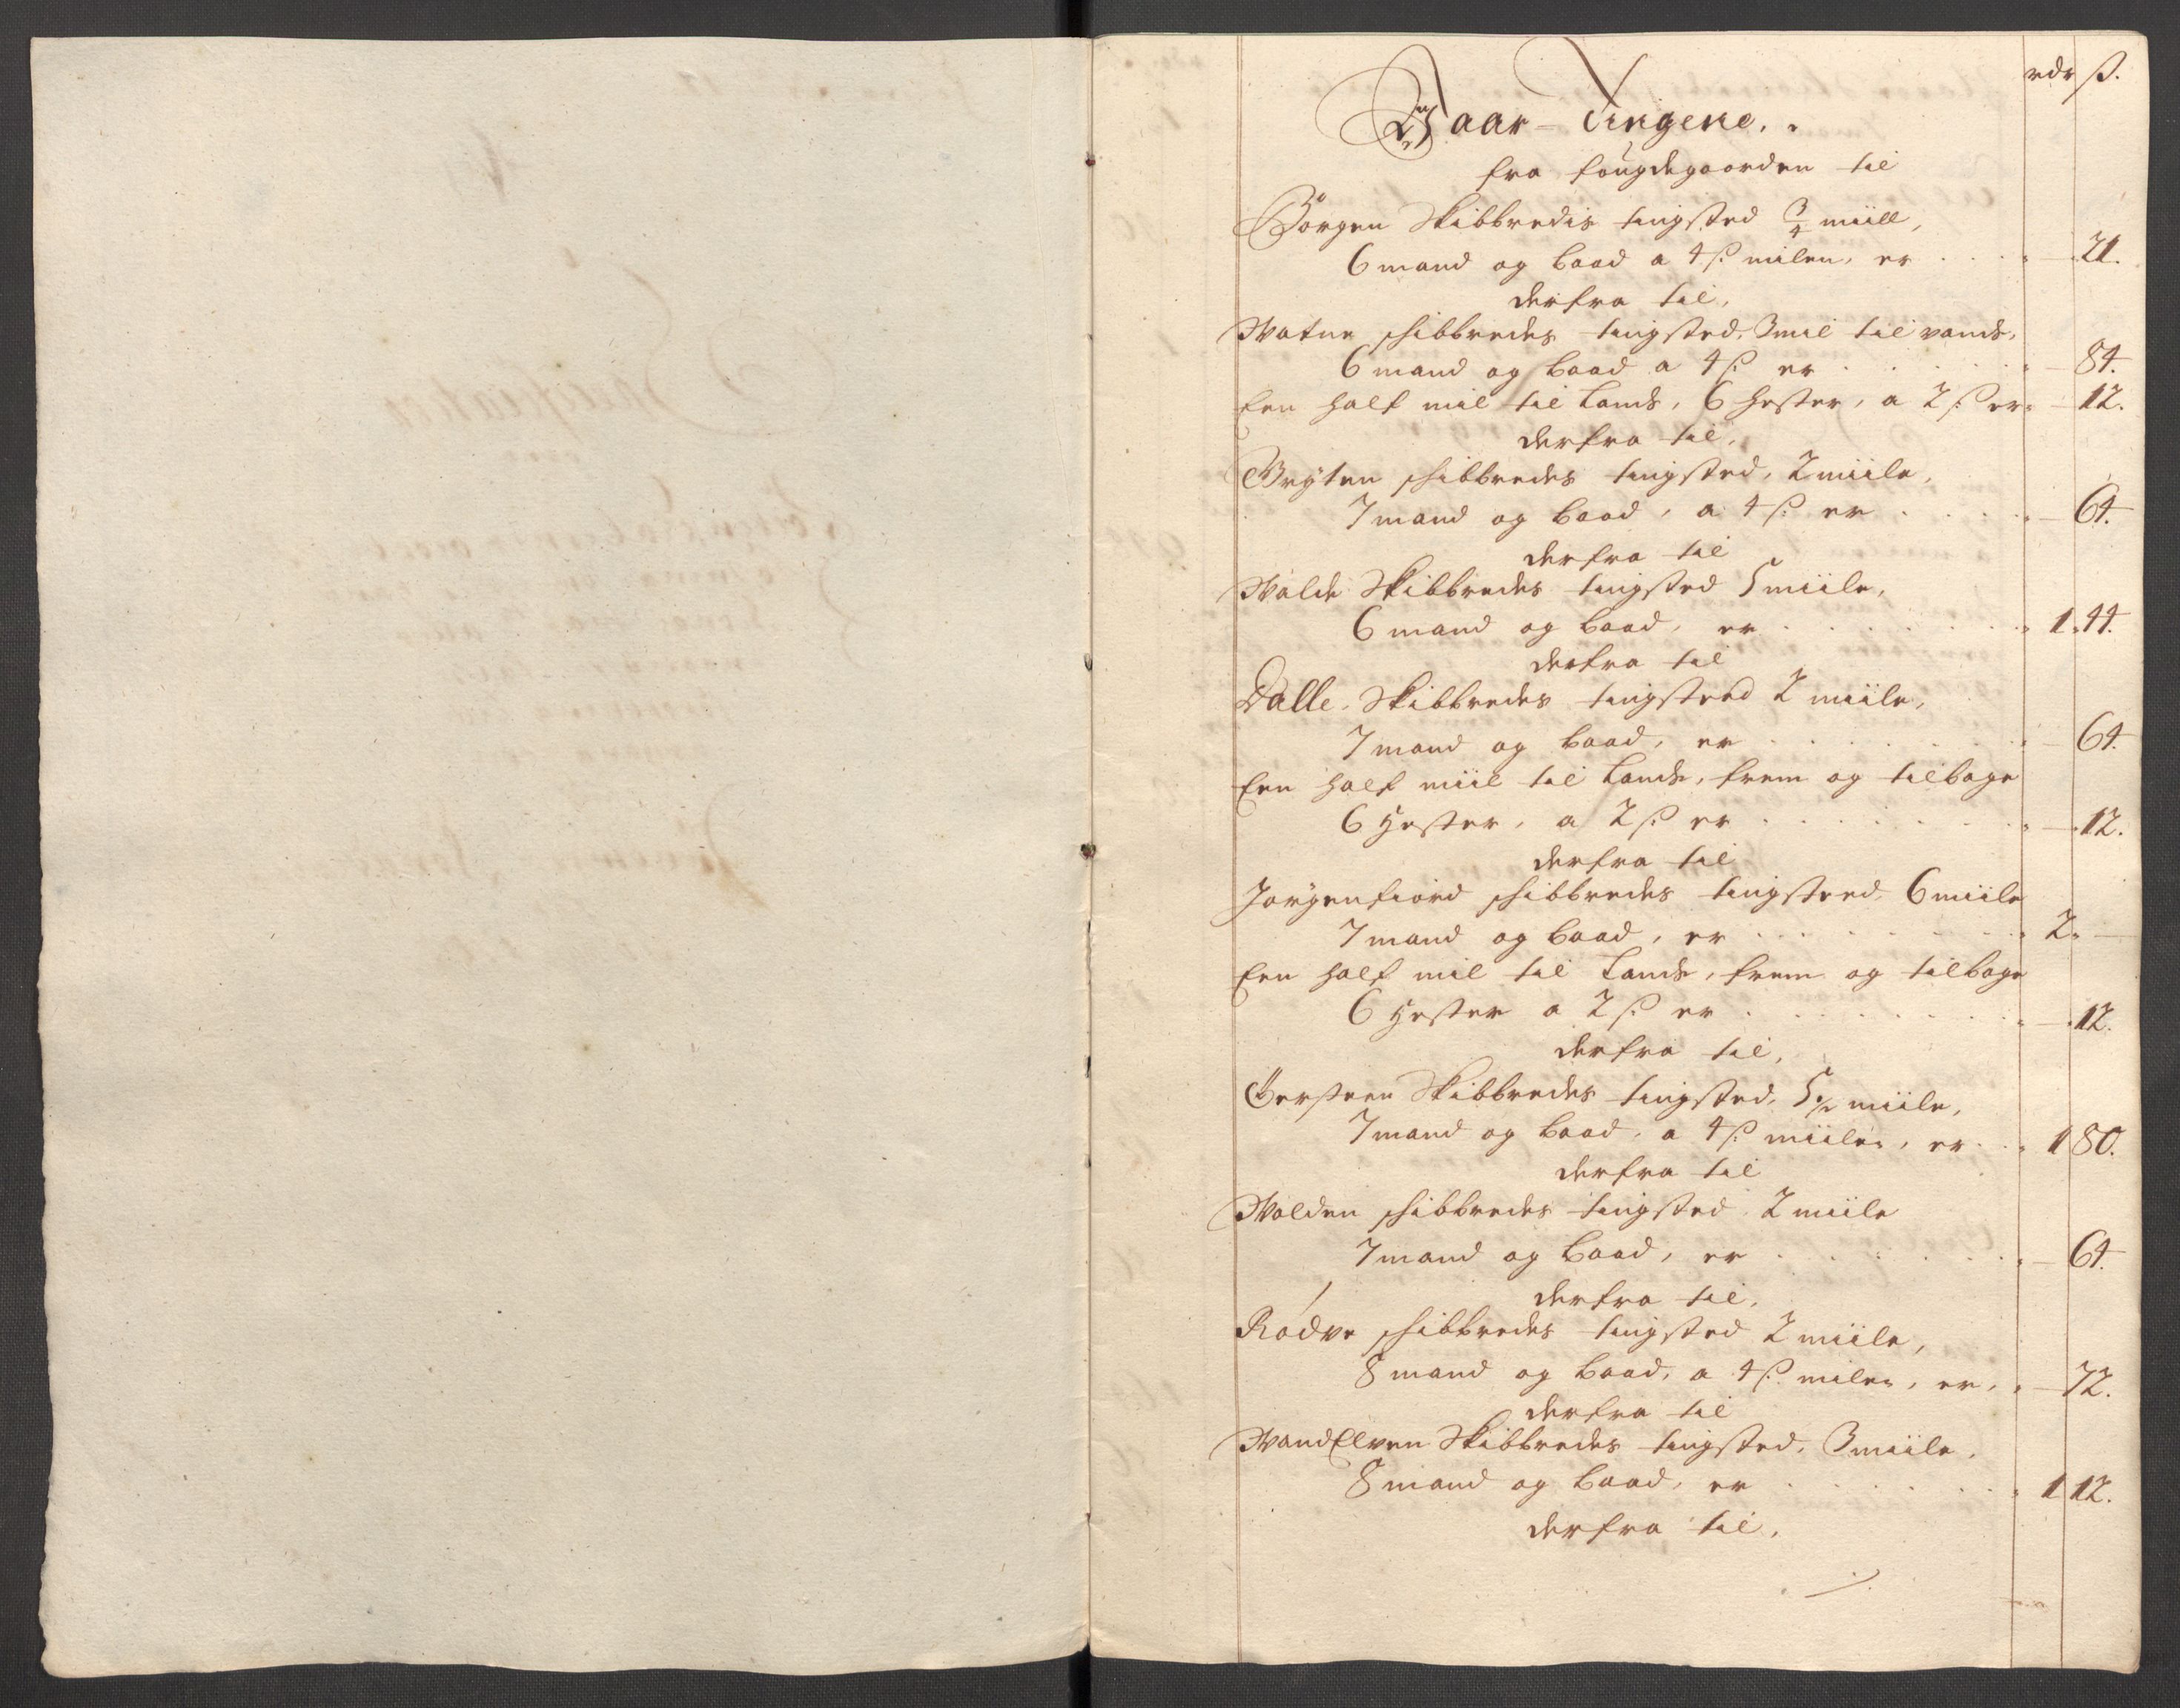 rdr ß.
Waar-Tingene.
fra fougdegaarden til
Borgen Skibbredis tingsted 3/4 miill,
6 mand og baad a 4 ß milen, er . . . . 21.
derfra til,
Watne schibbredes tingsted, 3 mil til vands,
6 mand og baad a 4 ß er . . . . . 84.
Een half mil til Lands, 6 hester, a 2 ß er 12.
derfra til,
Gryten schibbredes tingsted, 2 miile,
7 mand og baad, a 4 ß er . . . . 64.
derfra til
Walde Skibbredes tingsted 5 miile,
6 mand og baad, er . . . . . . . 1. 44.
derfra til
Dalle Skibbredes tingsted 2 miile,
7 mand og baad, er . . . . . . . 64.
Een half miil til Lands, frem og tilbage
6 Hester, a 2 ß er . . . . . . . 12.
derfra til
Jorgenfiord schibbredes tingsted, 6 miile
7 mand og baad, er . . . . . . . 2. —
Een half mil til Lands, frem og tilbage
6 Hester a 2 ß er . . . . . . . 12.
derfra til,
Gersteen Skibbredes tingsted, 5 1/2 miile,
7 mand og baad, a 4 ß miilen, er . . 1 80.
derfra til
Wolden schibbredes tingsted 2 miile
7 mand og baad, er . . . . . . . 64.
derfra til,
Rødve schibbredes tingsted 2 miile,
8 mand og baad, a 4 ß milen, er, 72.
derfra til
WandElven Skibbredes tingsted, 3 miile,
8 mand og baad, er . . . . . . . 1 12.
derfra til,